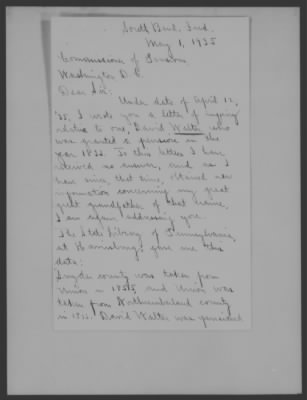 South Bend, Ind.
May 1, 1935
Commissioner of Pensions
Washington D. C.
Dear Sir:
Under date of April 12,
'35, I wrote you a letter of inquiry
relative to one, David Walter who
was granted a pension in the
year 1832. To this letter I have
received no answer, and as I
have since that time, obtained new
information concerning my great
great grandfather of that name,
I am again addressing you.
The State Library of Pennsylvania,
at Harrisburg, gave me this
data:
Snyder county was taken from
Union in 1855, and Union was
taken from Northumberland county
in 1813. David Walter was pensioned